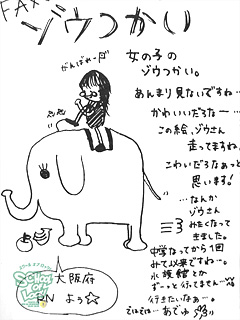 FAX
ゾウつかい
がんばれーッ
女の子の
ゾウつかい。
あんまり見ないですね…
かわいいだろな―…
この絵、ゾウさん
走ってますね。
こわいだろなぁっと
思います!
…なんか
ゾウさん
みたくなって
きました。
中学なってから1回
みて以来ですね…。
水族館とか
ずーっと行ってません…
行きたいなぁ…。
ではでは…あでゅ
スクールオブロック!
SCHOOL OF LOCK!
大阪府
RN よぅ☆